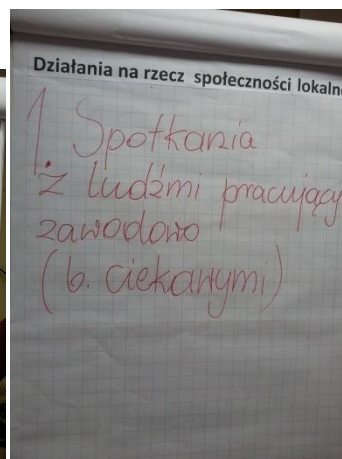 Działania na rzecz społeczności lokaln
1 Spotkania
z ludźmi pracujący
zawodowo
(b. ciekawymi)